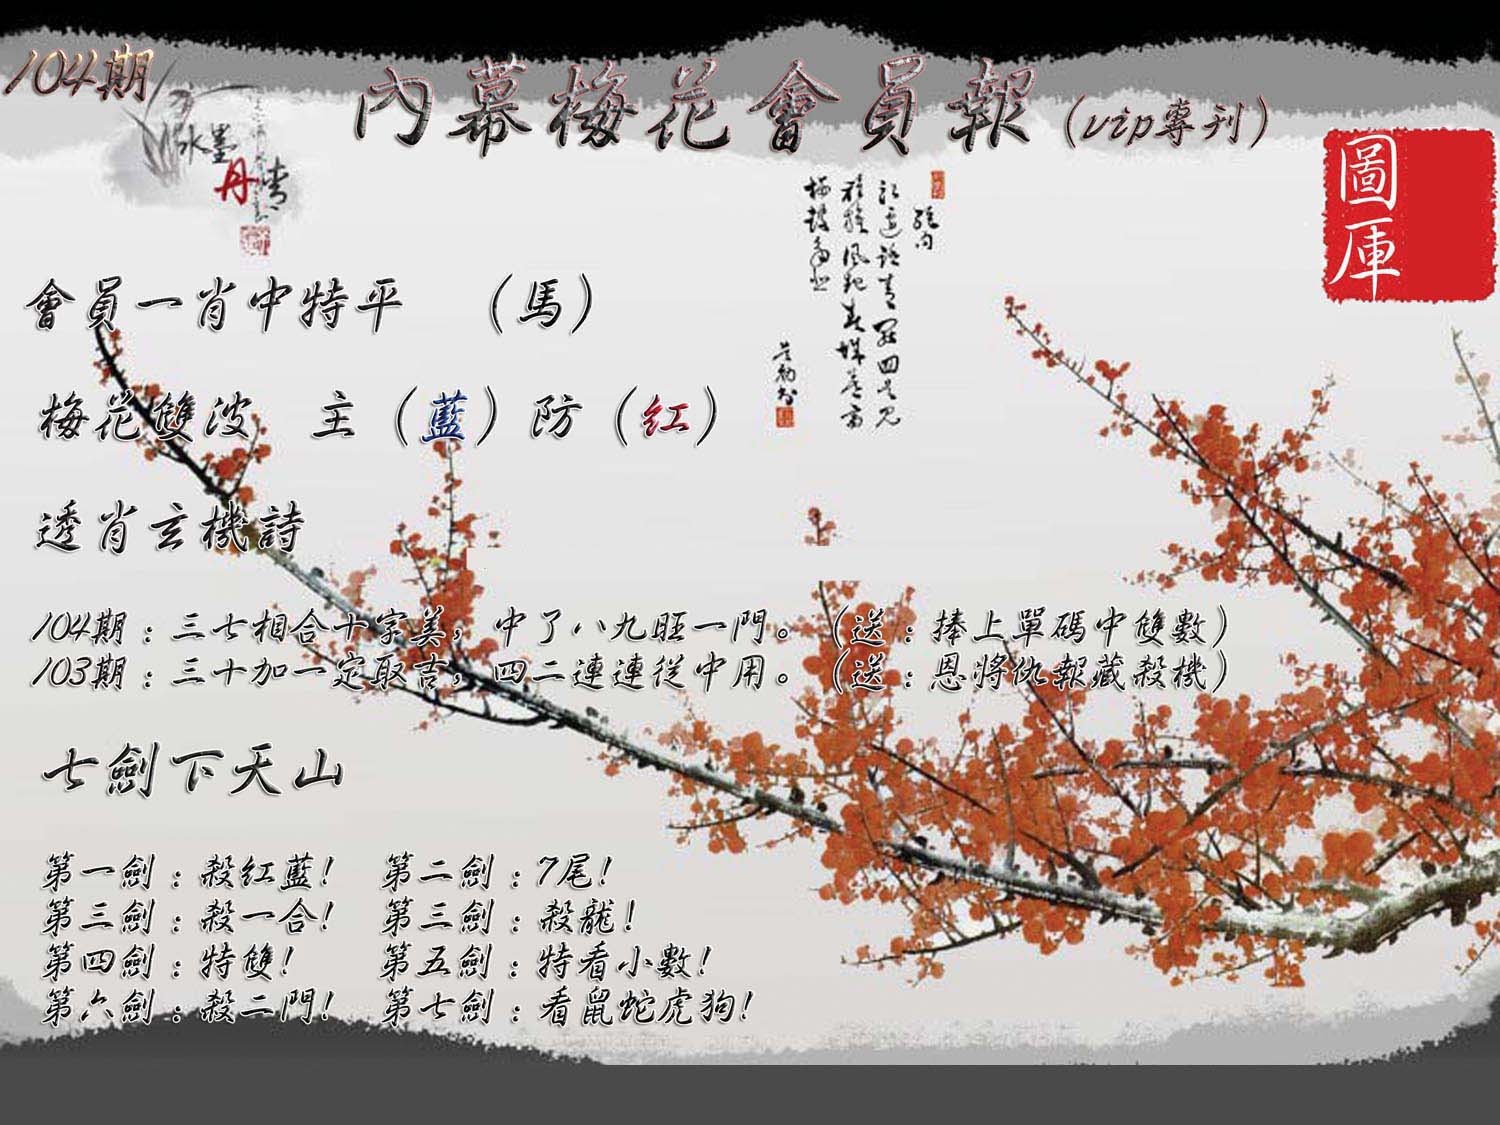 104期
內幕梅花會員報(vip專刊)
圖庫
水墨
丹青
會員一肖中特平 (馬)
梅花雙波 主(藍)防(紅)
透肖玄機詩
104期:三七相合十字美,中了八九旺一門。(送:捧上單碼中雙數)
103期:三十加一定取吉,四二連連從中用。(送:恩將仇報藏殺機)
七劍下天山
第一劍:殺紅藍! 第二劍:7尾!
第三劍:殺一合! 第三劍:殺龍!
第四劍:特雙! 第五劍:特看小數!
第六劍:殺二門! 第七劍:看鼠蛇虎狗!